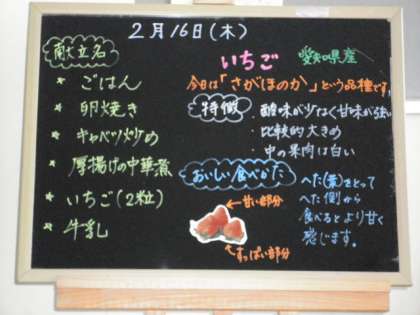 2月16日(木)
献立名
* ごはん
* 卵焼き
* キャベツ炒め
* 厚揚げの中華煮
* いちご(2粒)
* 牛乳
いちご 愛知県産
今日は「さがほのか」という品種です。
特徴
・酸味が少なく甘味が強い
・比較的大きめ
・中の果肉は白い
おいしい食べかた
へた(葉)をとって
へた側から
食べるとより甘く
感じます。
←甘い部分
すっぱい部分